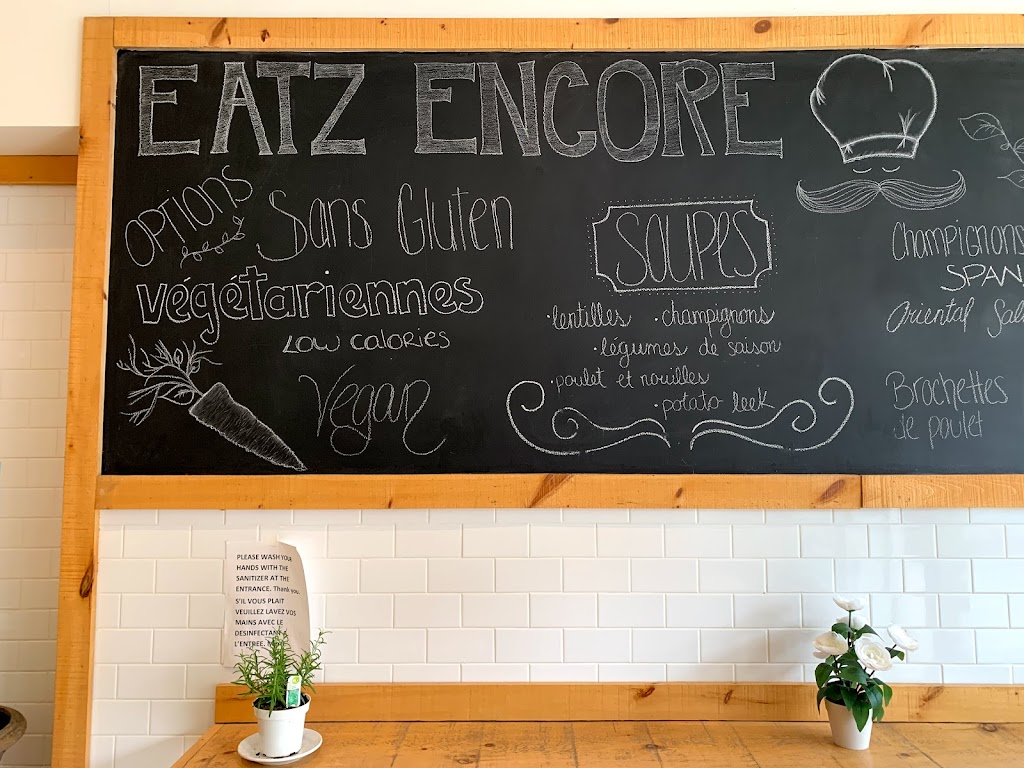 EATZ ENCORE
OPTIONS
Sans Gluten
végétariennes
LOW CALORIES
Vegan
SOUPES
·lentilles ·champignons
·légumes de saison
·poulet et nouilles
·potato leek
Champignons
SPAN
Oriental Sal
Brochettes
de poulet
PLEASE WASH YOUR
HANDS WITH THE
SANITIZER AT THE
ENTRANCE. Thank you.
S'IL VOUS PLAIT
VEUILLEZ LAVEZ VOS
MAINS AVEC LE
DESINFECTANT
L'ENTREE,